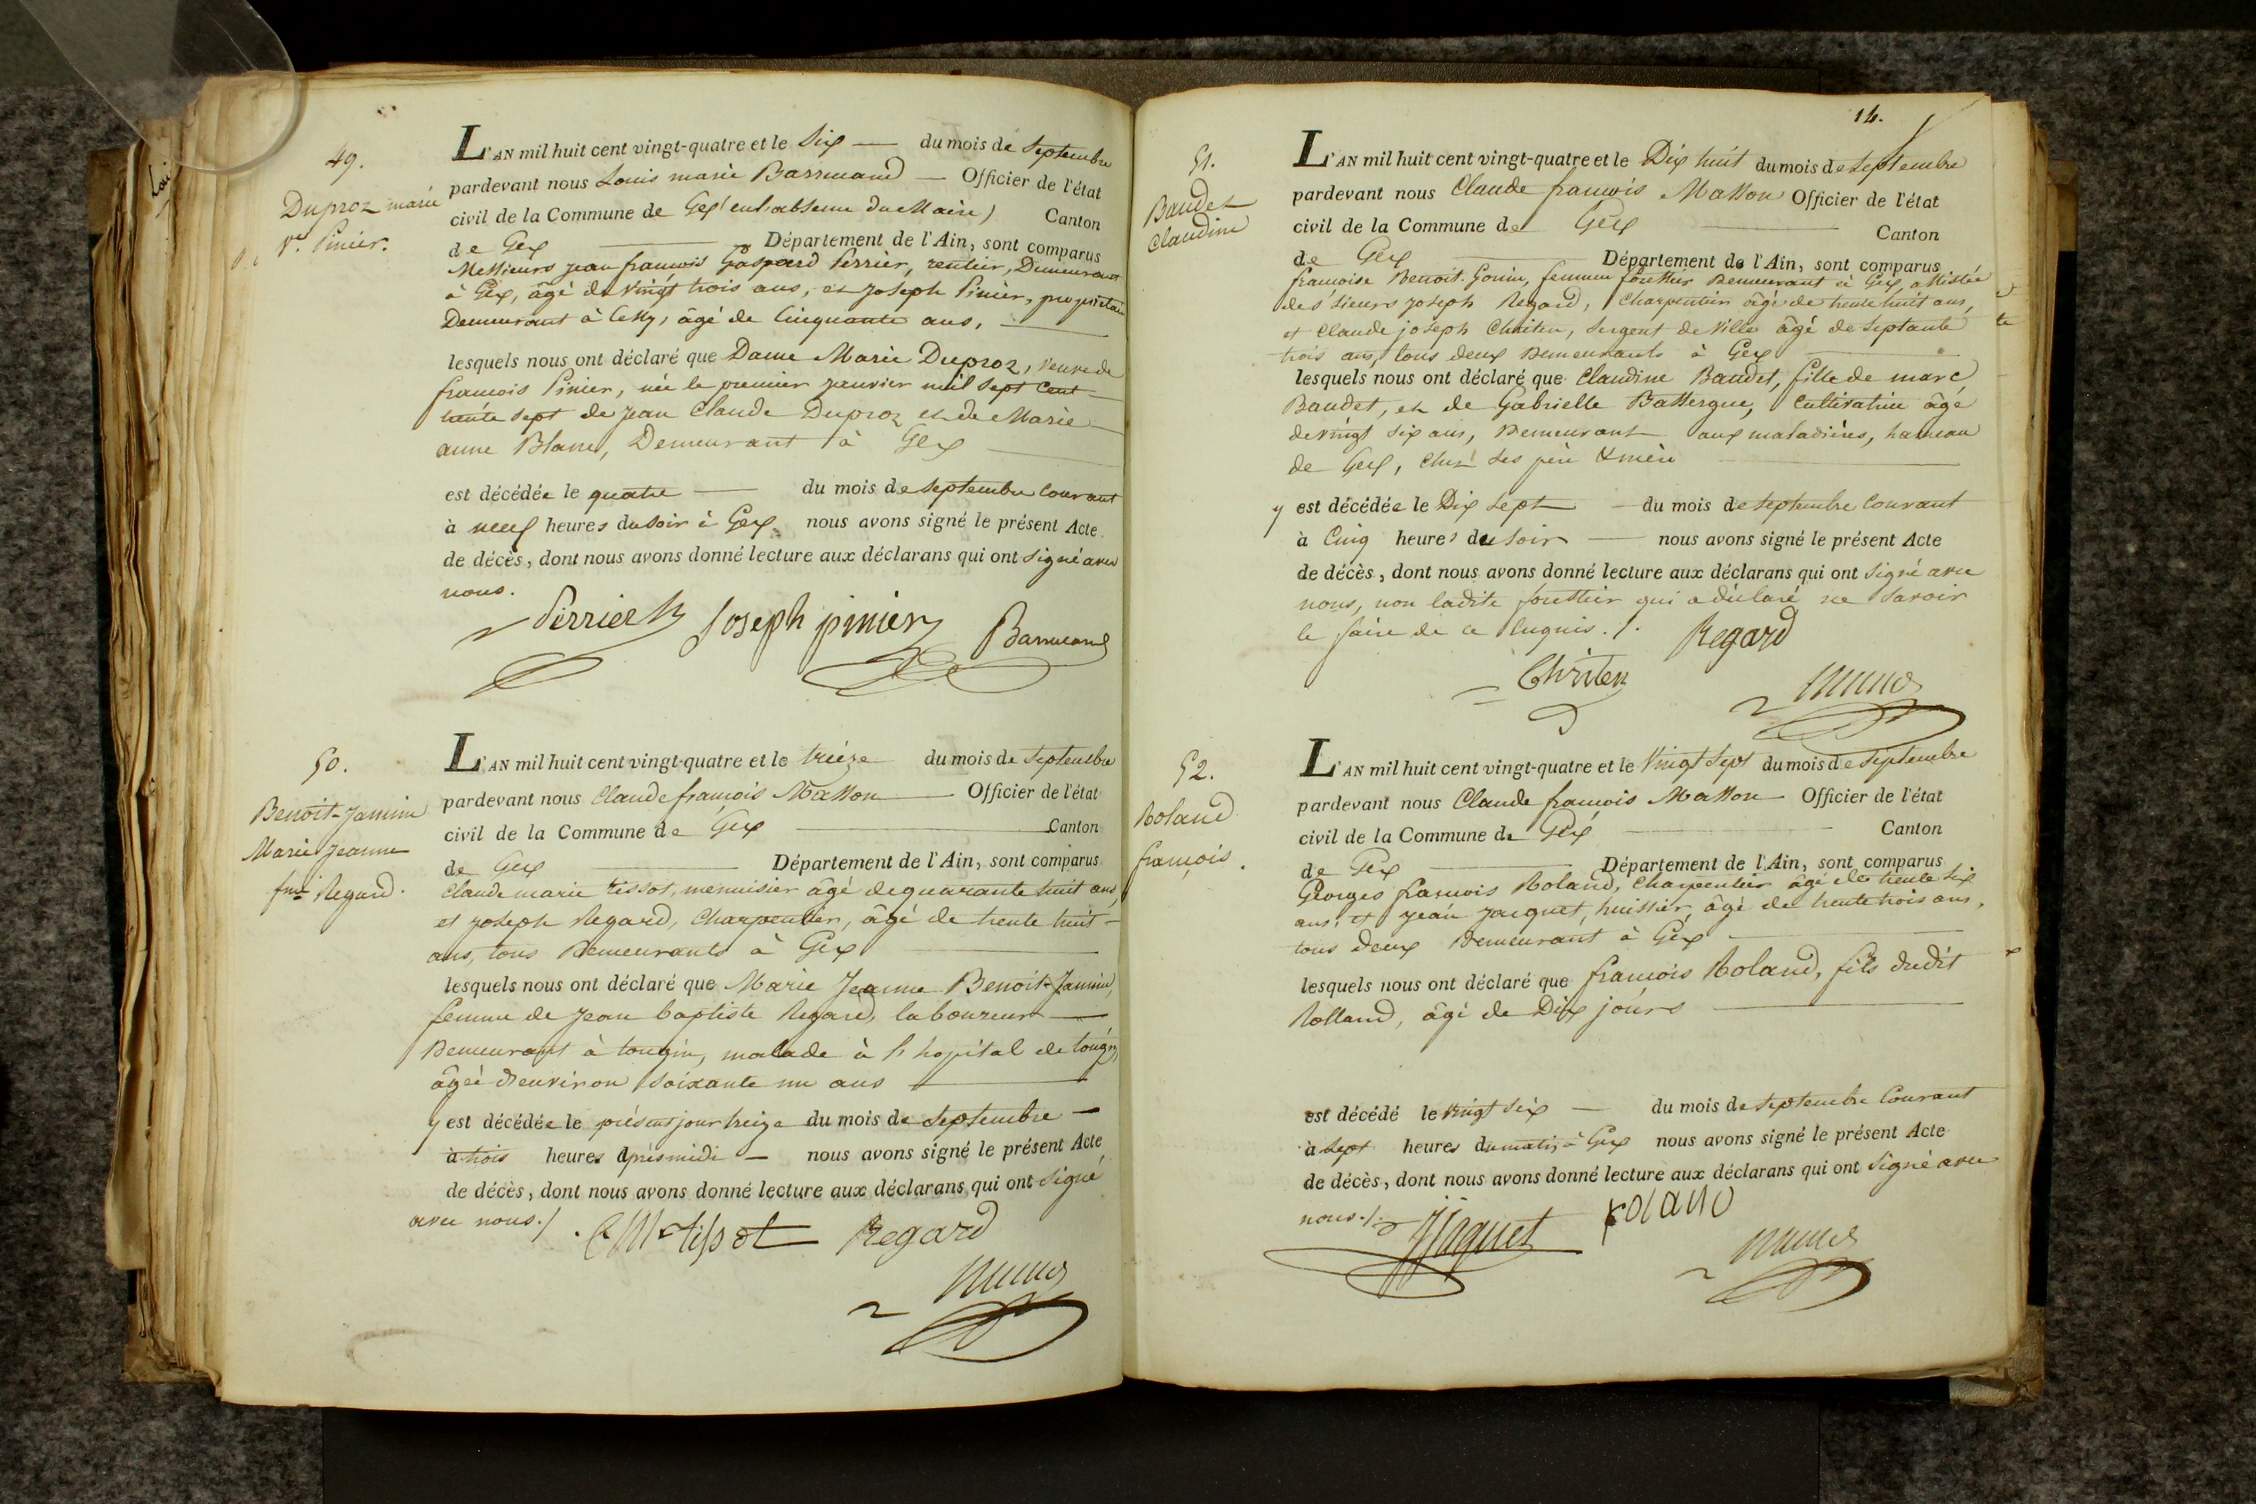 49.
Duproz marie
Ve. Pinier.
L'AN mil huit cent vingt-quatre et le Six — du mois de Septembre
pardevant nous Louis marie Barrucand — Officier de l'état
civil de la Commune de Gex (en l'absence du Maire) Canton
de Gex — Département de l'Ain, sont comparus
Messieurs jean françois Gaspard Perrier, rentier, Demeurant
à Gex, âgé de vingt trois ans, et Joseph Pinier, propriétaire
Demeurant à Cessy, âgé de Cinquante ans, —
lesquels nous ont déclaré que Dame Marie Duproz, veuve de
françois Pinier, née le premier janvier mil sept Cent
trente sept de Jean Claude Duproz et de Marie
anne Blanc, Demeurant à Gex —
est décédée le quatre — du mois de Septembre Courant
à neuf heures du soir à Gex nous avons signé le présent Acte
de décès, dont nous avons donné lecture aux déclarans qui ont signé avec
nous.
Perrier Joseph pinier Barrucand
50.
Benoit-Jannin
Marie Jeanne
fme Regard.
L'AN mil huit cent vingt-quatre et le treize du mois de Septembre
pardevant nous Claude françois Masson — Officier de l'état
civil de la Commune de Gex — Canton
de Gex — Département de l'Ain, sont comparus
Claude marie Tissot, menuisier âgé de quarante huit ans,
et Joseph Regard, Charpentier, âgé de trente huit
ans, tous Demeurants à Gex —
lesquels nous ont déclaré que Marie Jeanne Benoit-Jannin,
femme de Jean baptiste Regard, laboureur —
Demeurant à tougin, malade à l'hopital de tougin,
âgéé d'environ soixante un ans —
y est décédée le présent jour treize du mois de Septembre —
à trois heures après midi — nous avons signé le présent Acte
de décès, dont nous avons donné lecture aux déclarans qui ont signé
avec nous./.
CMtissot Regard
14.
51.
Baudet
Claudine
L'AN mil huit cent vingt-quatre et le Dix huit du mois de Septembre
pardevant nous Claude françois Masson Officier de l'état
civil de la Commune de Gex — Canton
de Gex — Département de l'Ain, sont comparus
françoise Benoit-Gonin, femme fouthier Demeurant à Gex, assistée
des sieurs Joseph Regard, Charpentier âgé de trente huit ans,
et Claude joseph Christen, Sergent de Ville âgé de septante
trois ans, tous deux Demeurants à Gex —
lesquels nous ont déclaré que Claudine Baudet, fille de marc
Baudet, et de Gabrielle Battergue, Cultivatrice âgé
de vingt six ans, Demeurant aux maladières, hameau
de Gex, chez ses père & mère —
y est décédée le Dix sept — du mois de Septembre Courant
à Cinq heures du soir — nous avons signé le présent Acte
de décès, dont nous avons donné lecture aux déclarans qui ont signé avec
nous, non ladite fouthier qui a déclaré ne Savoir
le faire de ce Enquis./.
Regard
Christen
52.
Roland
françois.
L'AN mil huit cent vingt-quatre et le Vingt Sept du mois de Septembre
pardevant nous Claude françois Masson — Officier de l'état
civil de la Commune de Gex — Canton
de Gex — Département de l'Ain, sont comparus
Georges françois Roland, Charpentier âgé de trente six
ans, et Jean Jacquet, huissier, âgé de trente trois ans,
tous deux Demeurant à Gex —
lesquels nous ont déclaré que françois Roland, fils dudit
Rolland, âgé de Dix jours —
est décédé le vingt six — du mois de Septembre Courant
à sept heures du matin à Gex nous avons signé le présent Acte
de décès, dont nous avons donné lecture aux déclarans qui ont signé avec
nous./.
Jjaquet roland